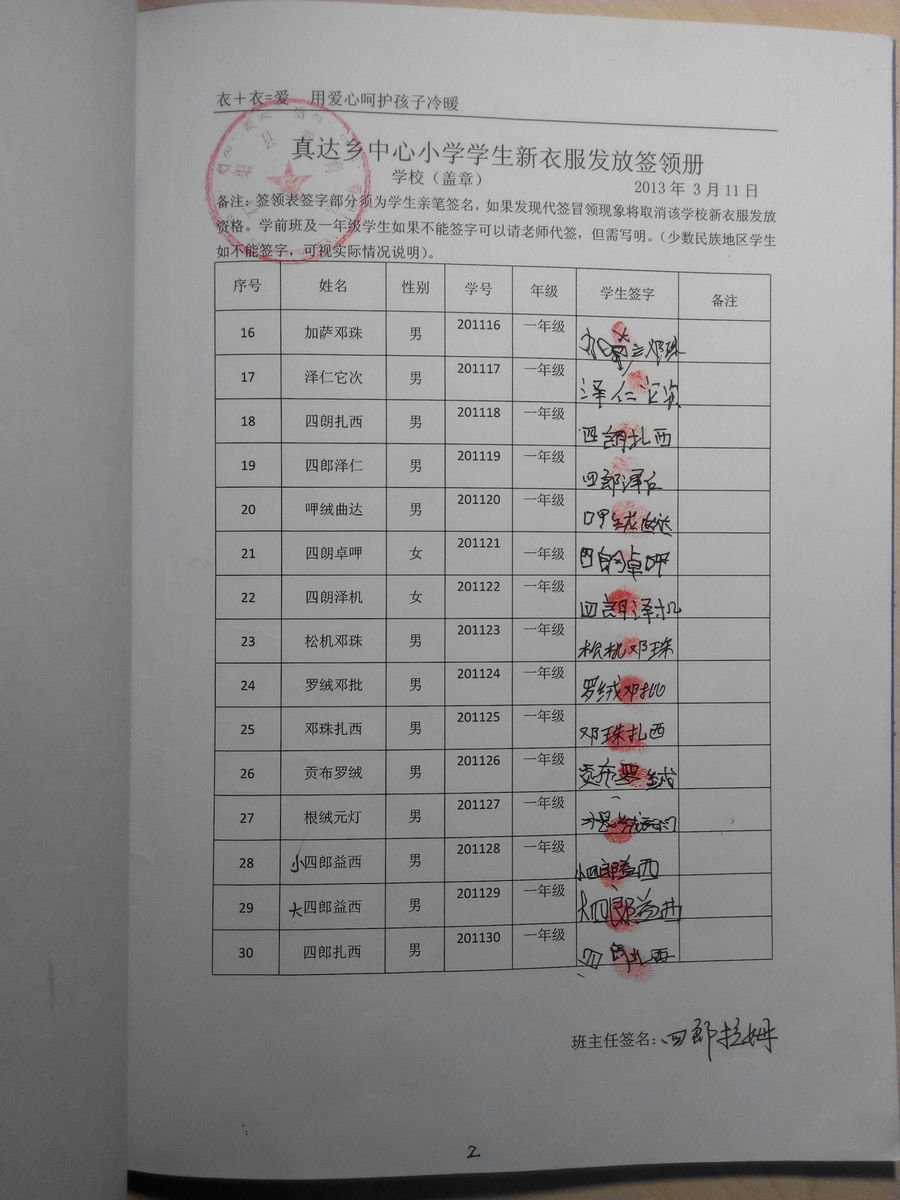 衣＋衣=爱 用爱心呵护孩子冷暖
真达乡中心小学学生新衣服发放签领册
学校（盖章） 2013 年 3 月 11 日
备注：签领表签字部分须为学生亲笔签名，如果发现代签冒领现象将取消该学校新衣服发放
资格。学前班及一年级学生如果不能签字可以请老师代签，但需写明。（少数民族地区学生
如不能签字，可视实际情况说明）。
序号 姓名 性别 学号 年级 学生签字 备注
16 加萨邓珠 男 201116 一年级 加萨邓珠
17 泽仁它次 男 201117 一年级 泽仁它次
18 四朗扎西 男 201118 一年级 四朗扎西
19 四郎泽仁 男 201119 一年级 四郎泽仁
20 呷绒曲达 男 201120 一年级 呷绒曲达
21 四朗卓呷 女 201121 一年级 四朗卓呷
22 四朗泽机 女 201122 一年级 四朗泽机
23 松机邓珠 男 201123 一年级 松机邓珠
24 罗绒邓批 男 201124 一年级 罗绒邓批
25 邓珠扎西 男 201125 一年级 邓珠扎西
26 贡布罗绒 男 201126 一年级 贡布罗绒
27 根绒元灯 男 201127 一年级
28 小四郎益西 男 201128 一年级 小四郎益西
29 大四郎益西 男 201129 一年级 大四郎益西
30 四郎扎西 男 201130 一年级 四郎扎西
班主任签名：四郎拉姆
2